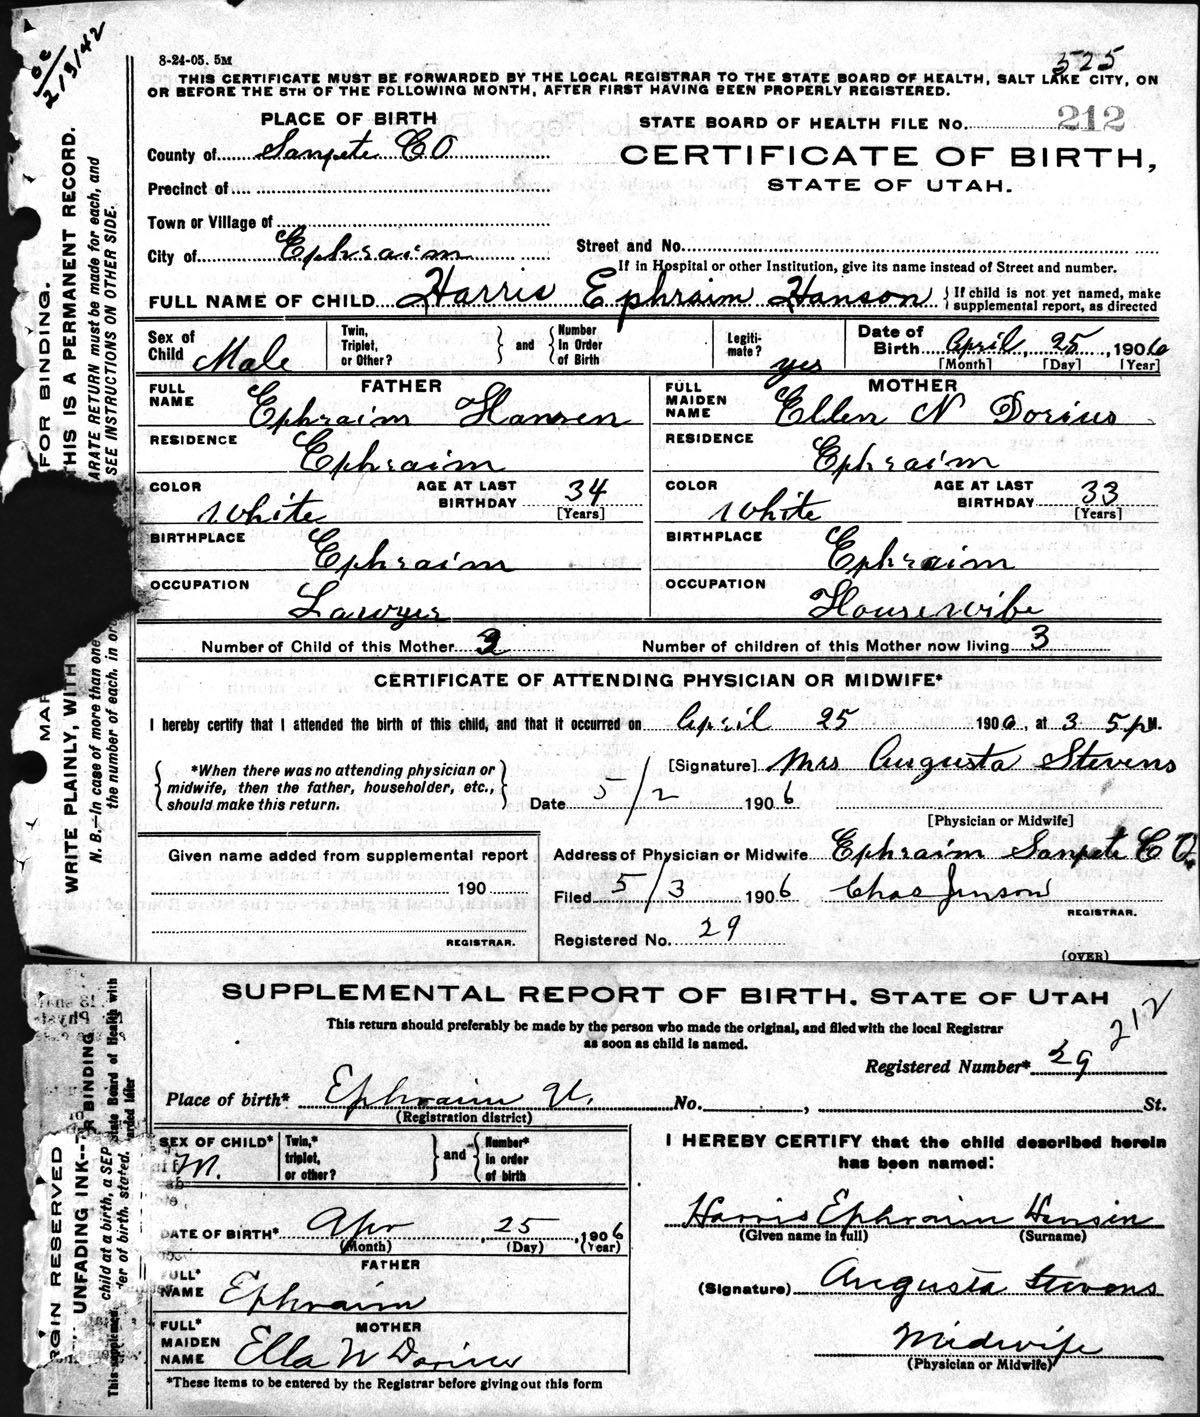 oc
2/3/42
8-24-05. 5M
525
THIS CERTIFICATE MUST BE FORWARDED BY THE LOCAL REGISTRAR TO THE STATE BOARD OF HEALTH, SALT LAKE CITY, ON
OR BEFORE THE 5TH OF THE FOLLOWING MONTH, AFTER FIRST HAVING BEEN PROPERLY REGISTERED.
PLACE OF BIRTH
STATE BOARD OF HEALTH FILE No. 212
County of Sanpete CO
CERTIFICATE OF BIRTH,
STATE OF UTAH.
Precinct of
Town or Village of
City of Ephraim
Street and No.
If in Hospital or other Institution, give its name instead of Street and number.
FULL NAME OF CHILD Harris Ephraim Hanson { If child is not yet named, make
supplemental report, as directed
Sex of Child Male Twin, Triplet, or Other? } and { Number In Order of Birth Legiti-mate? yes Date of Birth April, 25, 1906
[Month] [Day] [Year]
FATHER MOTHER
FULL NAME Ephraim Hansen FULL MAIDEN NAME Ellen N Dorius
RESIDENCE Ephraim RESIDENCE Ephraim
COLOR White AGE AT LAST BIRTHDAY 34 [Years] COLOR White AGE AT LAST BIRTHDAY 33 [Years]
BIRTHPLACE Ephraim BIRTHPLACE Ephraim
OCCUPATION Lawyer OCCUPATION Housewife
Number of Child of this Mother 3 Number of children of this Mother now living 3
CERTIFICATE OF ATTENDING PHYSICIAN OR MIDWIFE*
I hereby certify that I attended the birth of this child, and that it occurred on April 25 1906, at 3 5 p M.
{ *When there was no attending physician or
midwife, then the father, householder, etc.,
should make this return. }
[Signature] Mrs Augusta Stevens
Date 5/2 1906
[Physician or Midwife]
Given name added from supplemental report
190
REGISTRAR.
Address of Physician or Midwife Ephraim Sanpete CO.
Filed 5/3 1906 Chas Jenson
REGISTRAR.
Registered No. 29
(OVER)
FOR BINDING.
WRITE PLAINLY, WITH
THIS IS A PERMANENT RECORD.
N. B.—In case of more than one
ARATE RETURN must be made for each, and
the number of each, in or
SEE INSTRUCTIONS ON OTHER SIDE.
SUPPLEMENTAL REPORT OF BIRTH. STATE OF UTAH
This return should preferably be made by the person who made the original, and filed with the local Registrar
as soon as child is named.
212
Registered Number* 29
Place of birth* Ephraim U. No. , St.
(Registration district)
SEX OF CHILD* M. Twin,* triplet, or other? } and { Number* In order of birth
I HEREBY CERTIFY that the child described herein
has been named:
DATE OF BIRTH* Apr, 25, 1906
(Month) (Day) (Year)
Harris Ephraim Hansen
(Given name in full) (Surname)
FATHER
FULL* NAME Ephraim
(Signature) Augusta Stevens
MOTHER
FULL* MAIDEN NAME Ella N Dorius
Midwife
(Physician or Midwife)
*These items to be entered by the Registrar before giving out this form
RGIN RESERVED
UNFADING INK
R BINDING
child at a birth, a SEP
er of birth stated.
State Board of Health with